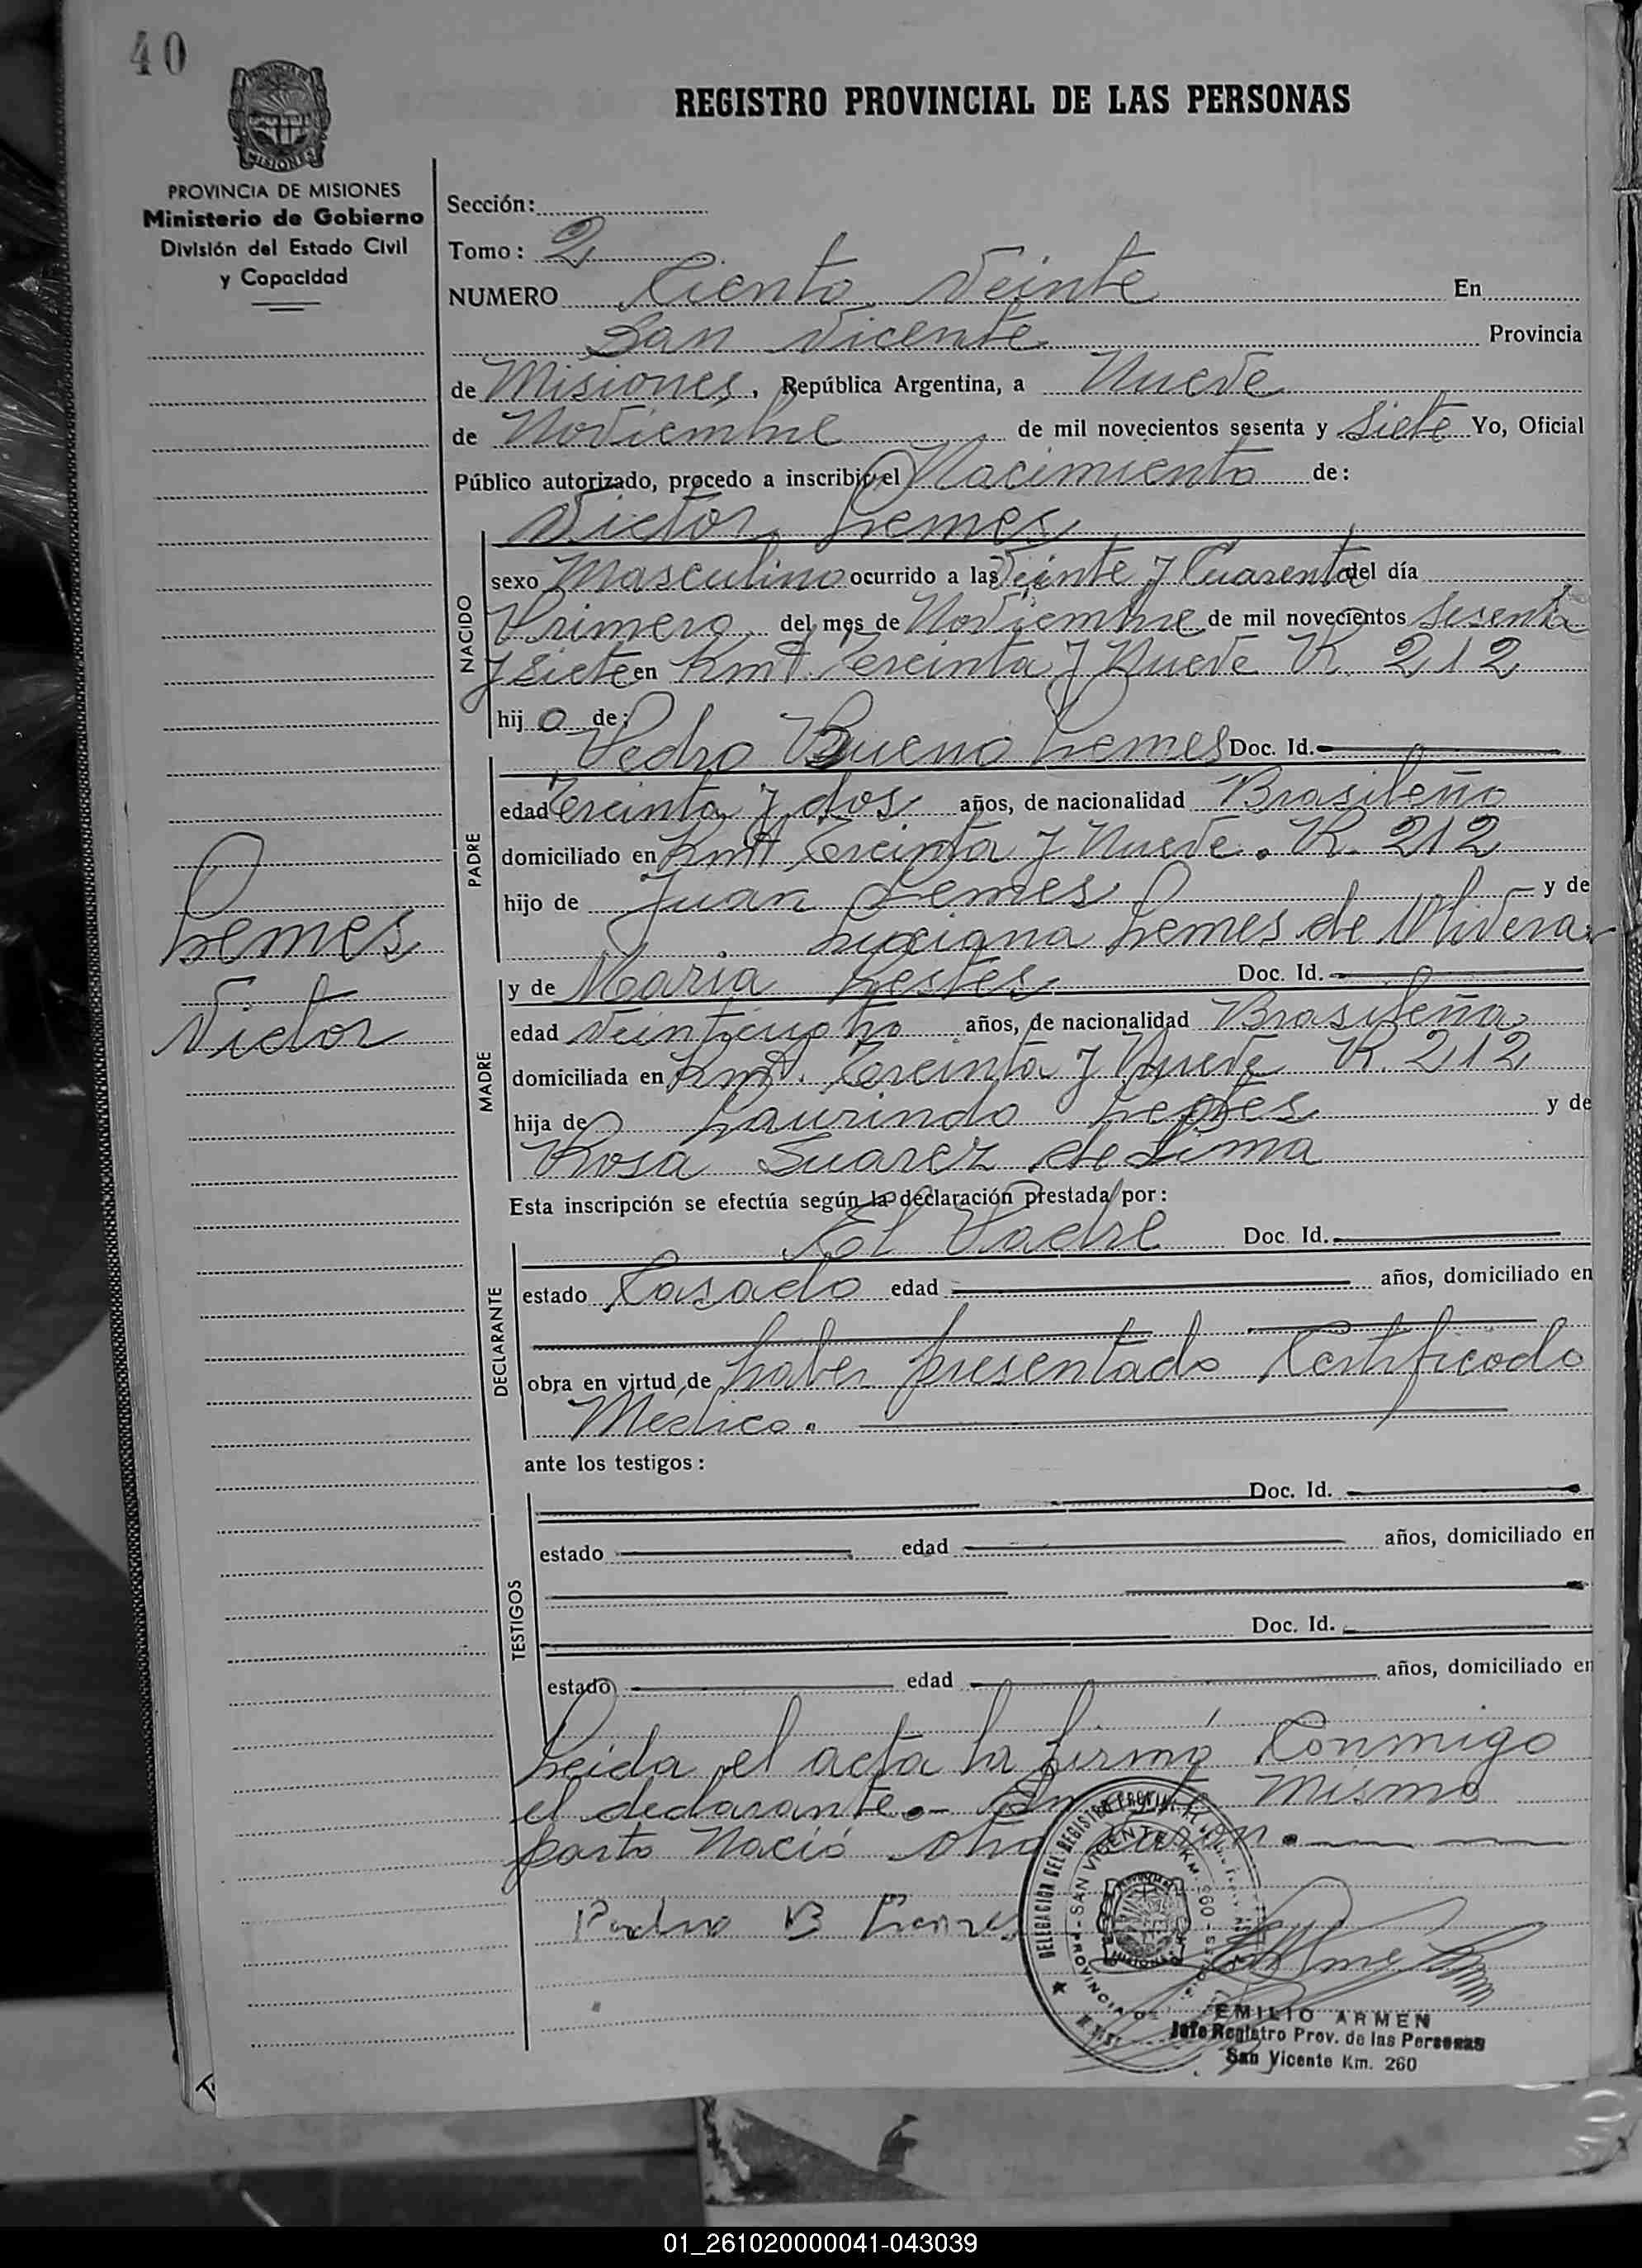 40
REGISTRO PROVINCIAL DE LAS PERSONAS
MISIONES
PROVINCIA DE MISIONES
Ministerio de Gobierno
División del Estado Civil
y Capacidad
Sección:
Tomo: 2
NUMERO Ciento Veinte En
San Vicente Provincia
de Misiones, República Argentina, a Nueve
de Noviembre de mil novecientos sesenta y Siete Yo, Oficial
Público autorizado, procedo a inscribir el Nacimiento de:
Victor Lemes
NACIDO
sexo Masculino ocurrido a las Veinte y Cuarenta del día
Primero del mes de Noviembre de mil novecientos Sesenta
y siete en Kmt. Treinta y Nueve R. 212
hijo de:
Pedro Bueno Lemes Doc. Id.
PADRE
edad Treinta y dos años, de nacionalidad Brasileño
domiciliado en Kmt Treinta y Nueve. R. 212
hijo de Juan Lemes y de
Lemes de Olivera
Lemes
Victor
y de Maria Doc. Id.
MADRE
edad años, de nacionalidad Brasileña
domiciliada en Kmt. Treinta y Nueve R. 212
hija de Laurindo y de
Rosa Suarez de Lima
Esta inscripción se efectúa según la declaración prestada por:
El Padre Doc. Id.
DECLARANTE
estado Casado edad años, domiciliado en
obra en virtud de haber presentado Certificado
Médico.
ante los testigos:
Doc. Id.
TESTIGOS
estado edad años, domiciliado en
Doc. Id.
estado edad años, domiciliado en
Leida el acta la firmó Conmigo
el declarante.- Mismo
parto Nació otro Varon.
Pedro B Lemes
DELEGACION DEL REGISTRO PROVINCIAL
SAN VICENTE KM. 260
PROVINCIA DE
MISIONES
EMILIO ARMEN
Jefe Registro Prov. de las Personas
San Vicente Km. 260
01_261020000041-043039